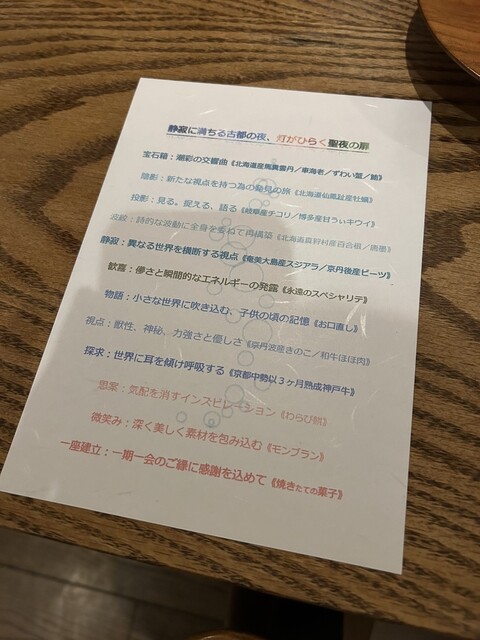 静寂に満ちる古都の夜、灯がひらく聖夜の扉
宝石箱：潮彩の交響曲《北海道産馬糞雲丹／車海老／ずわい蟹／鮑》
陰影：新たな視点を持つ為の発見の旅《北海道仙鳳趾産牡蠣》
投影：見る、捉える、語る《岐阜産チコリ／博多産甘うぃキウイ》
波紋：詩的な波動に全身を委ねて再構築《北海道真狩村産百合根／
静寂：異なる世界を横断する視点《奄美大島産スジアラ／京丹後産ビーツ》
歓喜：儚さと瞬間的なエネルギーの発露《永遠のスペシャリテ》
物語：小さな世界に吹き込む、子供の頃の記憶《お口直し》
視点：獣性、神秘、力強さと優しさ《京丹波産きのこ／和牛ほほ肉》
探求：世界に耳を傾け呼吸する《京都中勢以３ヶ月熟成神戸牛》
思案：気配を消すインスピレーション《わらび餅》
微笑み：深く美しく素材を包み込む《モンブラン》
一座建立：一期一会のご縁に感謝を込めて《焼きたての菓子》